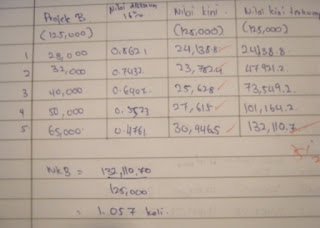 Projek B Nilai 16% Nilai kini Nilai kini terkumpul
(125,000) (125,000) (125,000)
1 28,000 0.8621 24,138.8 24,138.8
2 32,000 0.7432 23,782.4 47,921.2
3 40,000 0.6407 25,628 73,549.2
4 50,000 0.5523 27,615 101,164.2
5 65,000 0.4761 30,946.5 132,110.7
NKB = 132,110.70
125,000
= 1.057 kali.